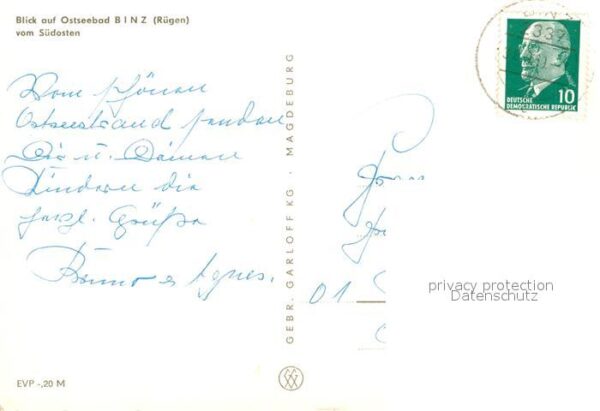 Blick auf Ostseebad BINZ (Rügen)
vom Südosten
Vom schönen
Ostseestrand senden
Dir u. Deinen
Kindern die
herzl. Grüße
Bruno u. Agnes.
EVP -,20 M
GEBR. GARLOFF KG · MAGDEBURG
DEUTSCHE
DEMOKRATISCHE REPUBLIK
10
01
privacy protection
Datenschutz